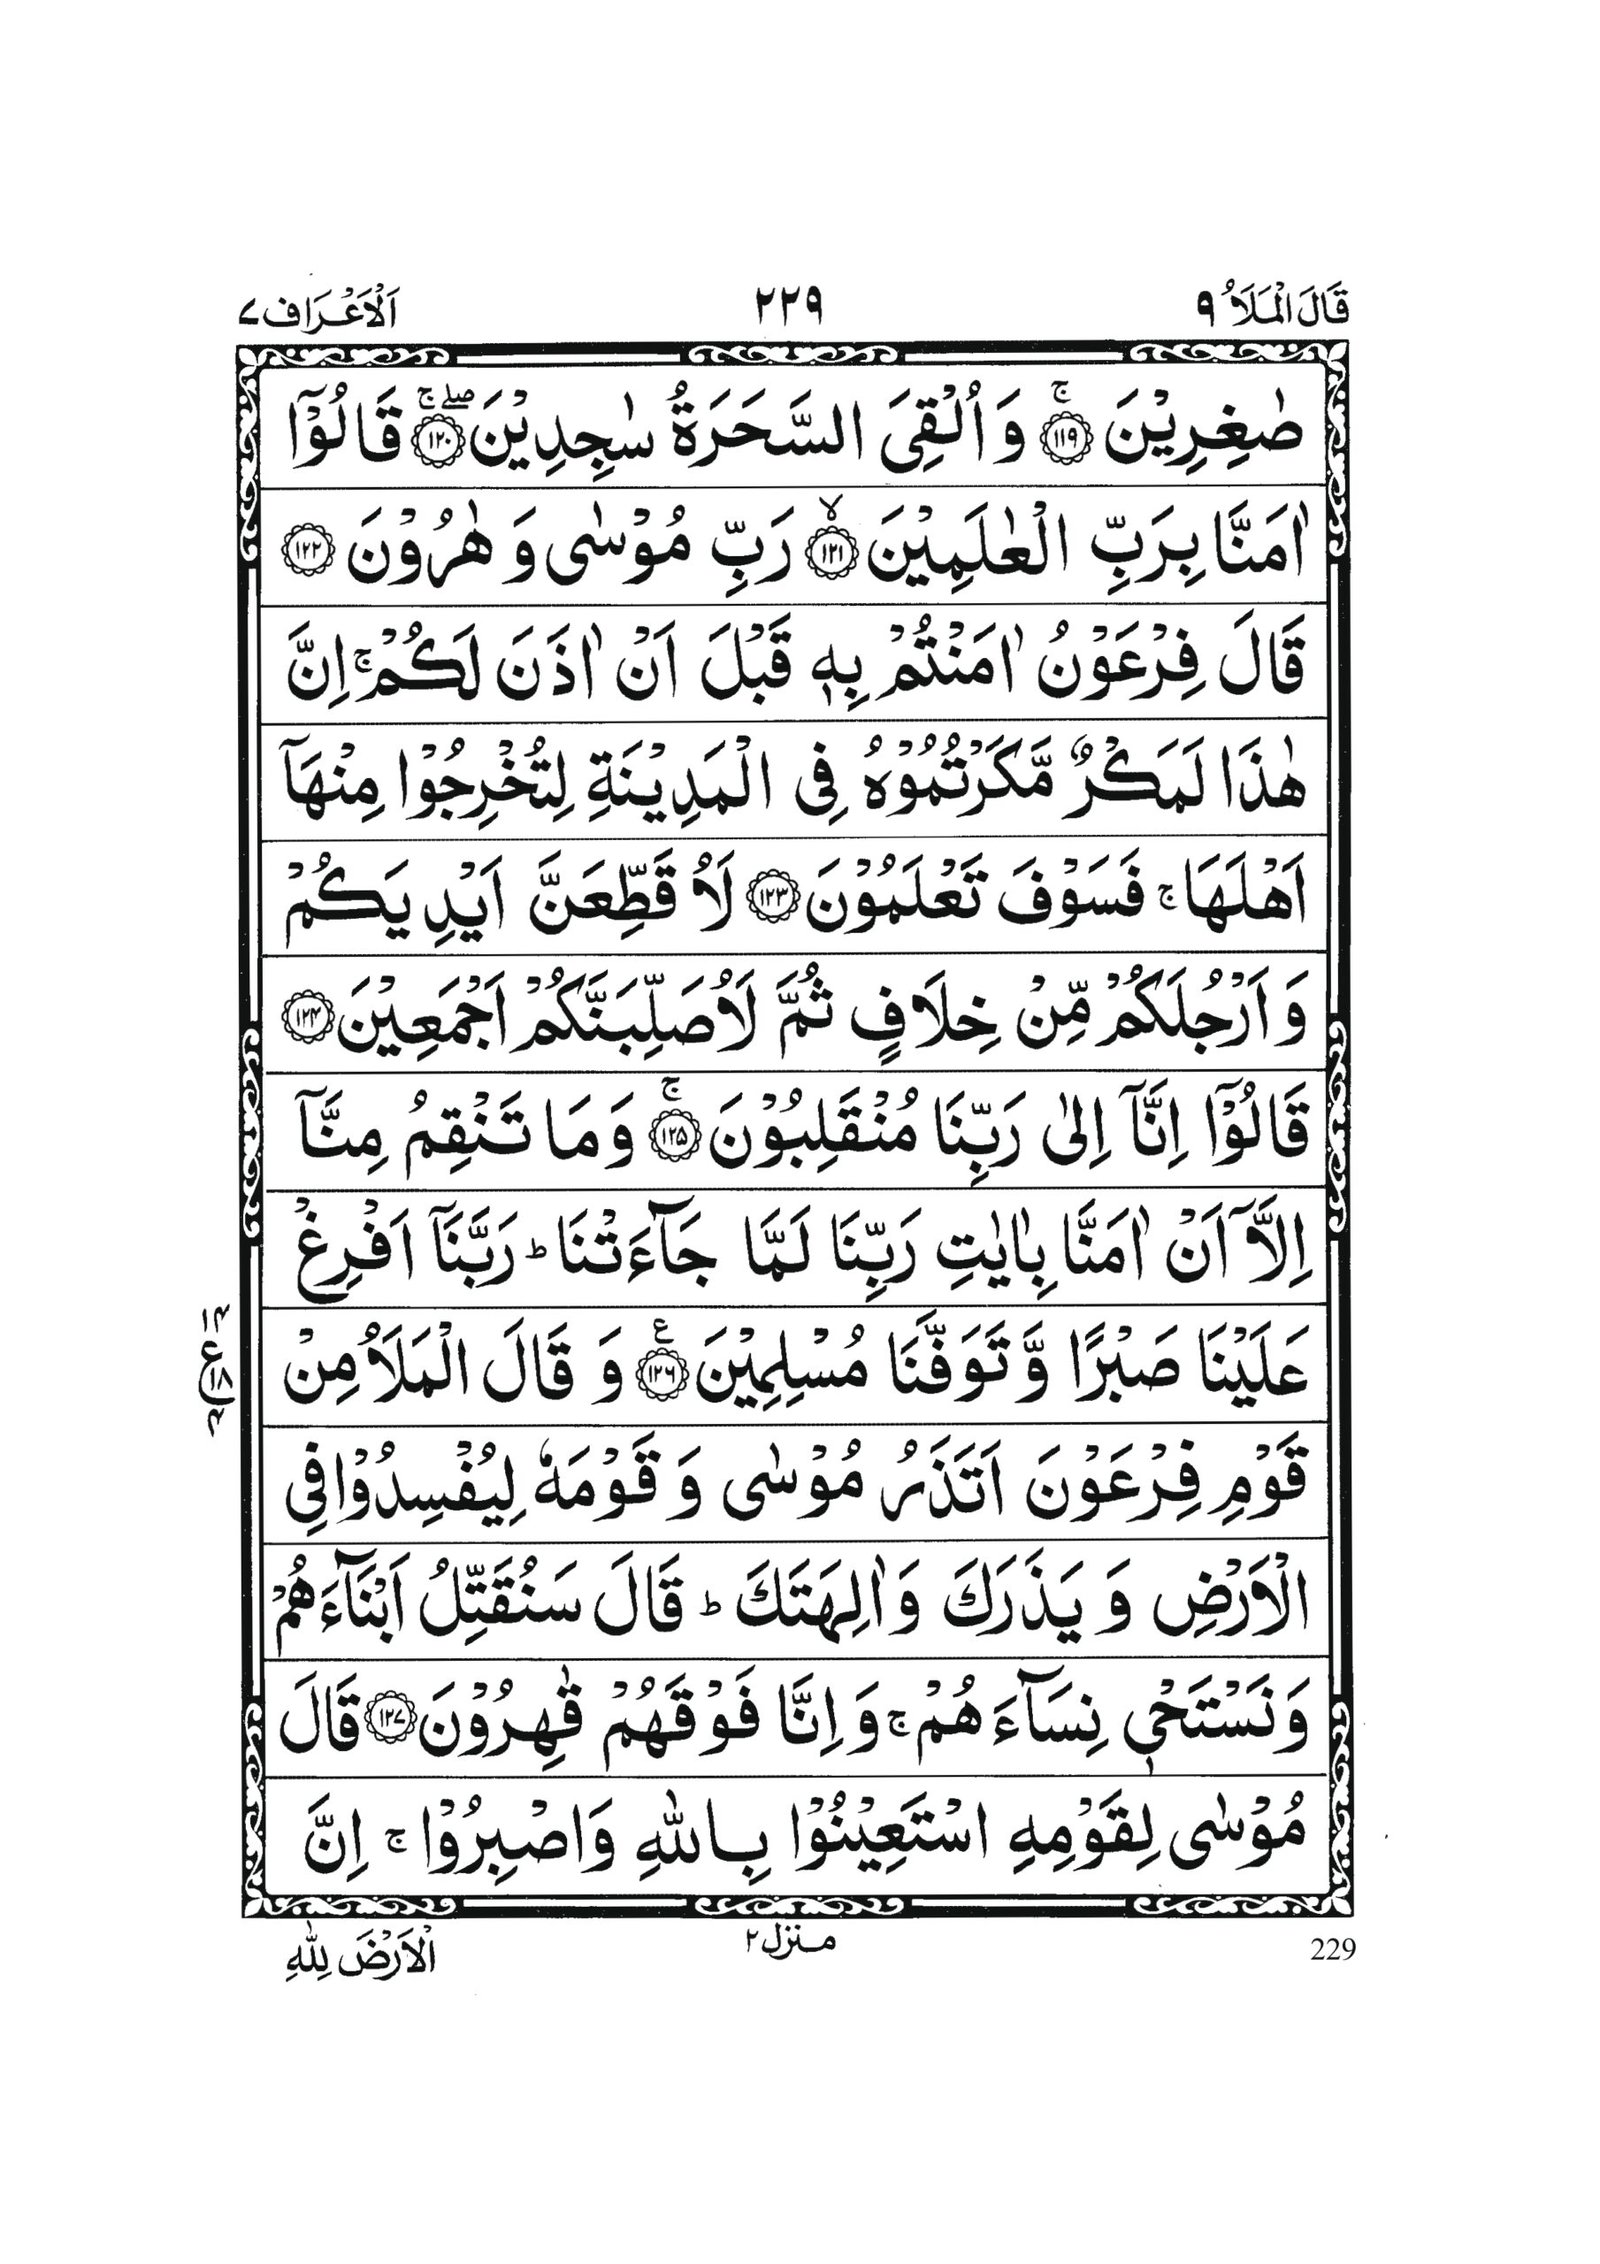 قَالَ الْمَلَاُ ٩ ٢٢٩ اَلْاَعْرَاف ٧
صٰغِرِيْنَ ۚ﴿١١٩﴾ وَ اُلْقِیَ السَّحَرَةُ سٰجِدِيْنَ ۖۚ﴿١٢٠﴾ قَالُوْۤا
اٰمَنَّا بِرَبِّ الْعٰلَمِيْنَ ۙ﴿١٢١﴾ رَبِّ مُوْسٰی وَ هٰرُوْنَ ﴿١٢٢﴾
قَالَ فِرْعَوْنُ اٰمَنْتُمْ بِهٖ قَبْلَ اَنْ اٰذَنَ لَكُمْ ۚ اِنَّ
هٰذَا لَمَكْرٌ مَّكَرْتُمُوْهُ فِی الْمَدِيْنَةِ لِتُخْرِجُوْا مِنْهَاۤ
اَهْلَهَا ۚ فَسَوْفَ تَعْلَمُوْنَ ﴿١٢٣﴾ لَاُقَطِّعَنَّ اَيْدِيَكُمْ
وَ اَرْجُلَكُمْ مِّنْ خِلَافٍ ثُمَّ لَاُصَلِّبَنَّكُمْ اَجْمَعِيْنَ ﴿١٢٤﴾
قَالُوْۤا اِنَّاۤ اِلٰی رَبِّنَا مُنْقَلِبُوْنَ ۚ﴿١٢٥﴾ وَ مَا تَنْقِمُ مِنَّاۤ
اِلَّاۤ اَنْ اٰمَنَّا بِاٰيٰتِ رَبِّنَا لَمَّا جَآءَتْنَا ؕ رَبَّنَاۤ اَفْرِغْ
عَلَيْنَا صَبْرًا وَّ تَوَفَّنَا مُسْلِمِيْنَ ﴿١٢٦﴾ ع وَ قَالَ الْمَلَاُ مِنْ
قَوْمِ فِرْعَوْنَ اَتَذَرُ مُوْسٰی وَ قَوْمَهٗ لِيُفْسِدُوْا فِی
الْاَرْضِ وَ يَذَرَكَ وَ اٰلِهَتَكَ ؕ قَالَ سَنُقَتِّلُ اَبْنَآءَهُمْ
وَ نَسْتَحْیٖ نِسَآءَهُمْ ۚ وَ اِنَّا فَوْقَهُمْ قٰهِرُوْنَ ﴿١٢٧﴾ قَالَ
مُوْسٰی لِقَوْمِهِ اسْتَعِيْنُوْا بِاللّٰهِ وَ اصْبِرُوْا ۚ اِنَّ
229 منزل ٢ الْاَرْضَ لِلّٰهِ